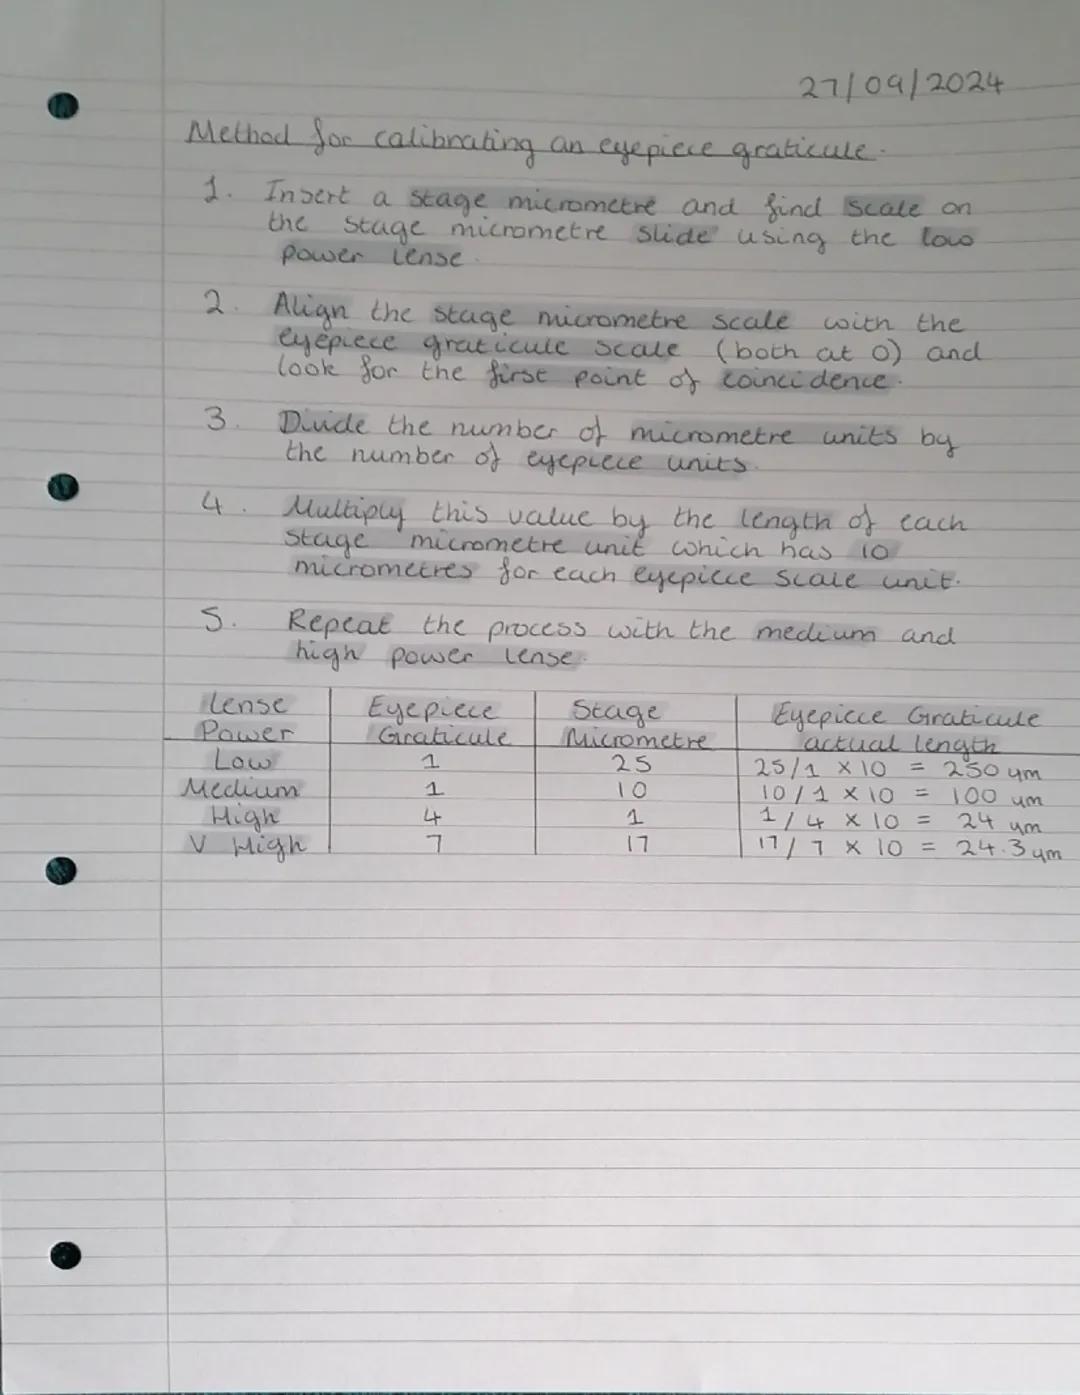 27/09/2024
Method for calibrating an eyepiece graticule.
1. Insert a stage micrometre and find scale on
the stage micrometre slide using the low
power lense.
2. Align the stage micrometre scale with the
eyepiece graticule scale (both at 0) and
look for the first point of coincidence.
3. Divide the number of micrometre units by
the number of eyepiece units.
4. Multiply this value by the length of each
stage micrometre unit which has 10
micrometres for each eyepiece scale unit.
5. Repeat the process with the medium and
high power lense.
Lense Power | Eyepiece Graticule | Stage Micrometre | Eyepiece Graticule actual length
Low | 1 | 25 | 25/1 × 10 = 250 um
Medium | 1 | 10 | 10/1 × 10 = 100 um
High | 4 | 1 | 1/4 × 10 = 24 um
V High | 7 | 17 | 17/7 × 10 = 24.3 um